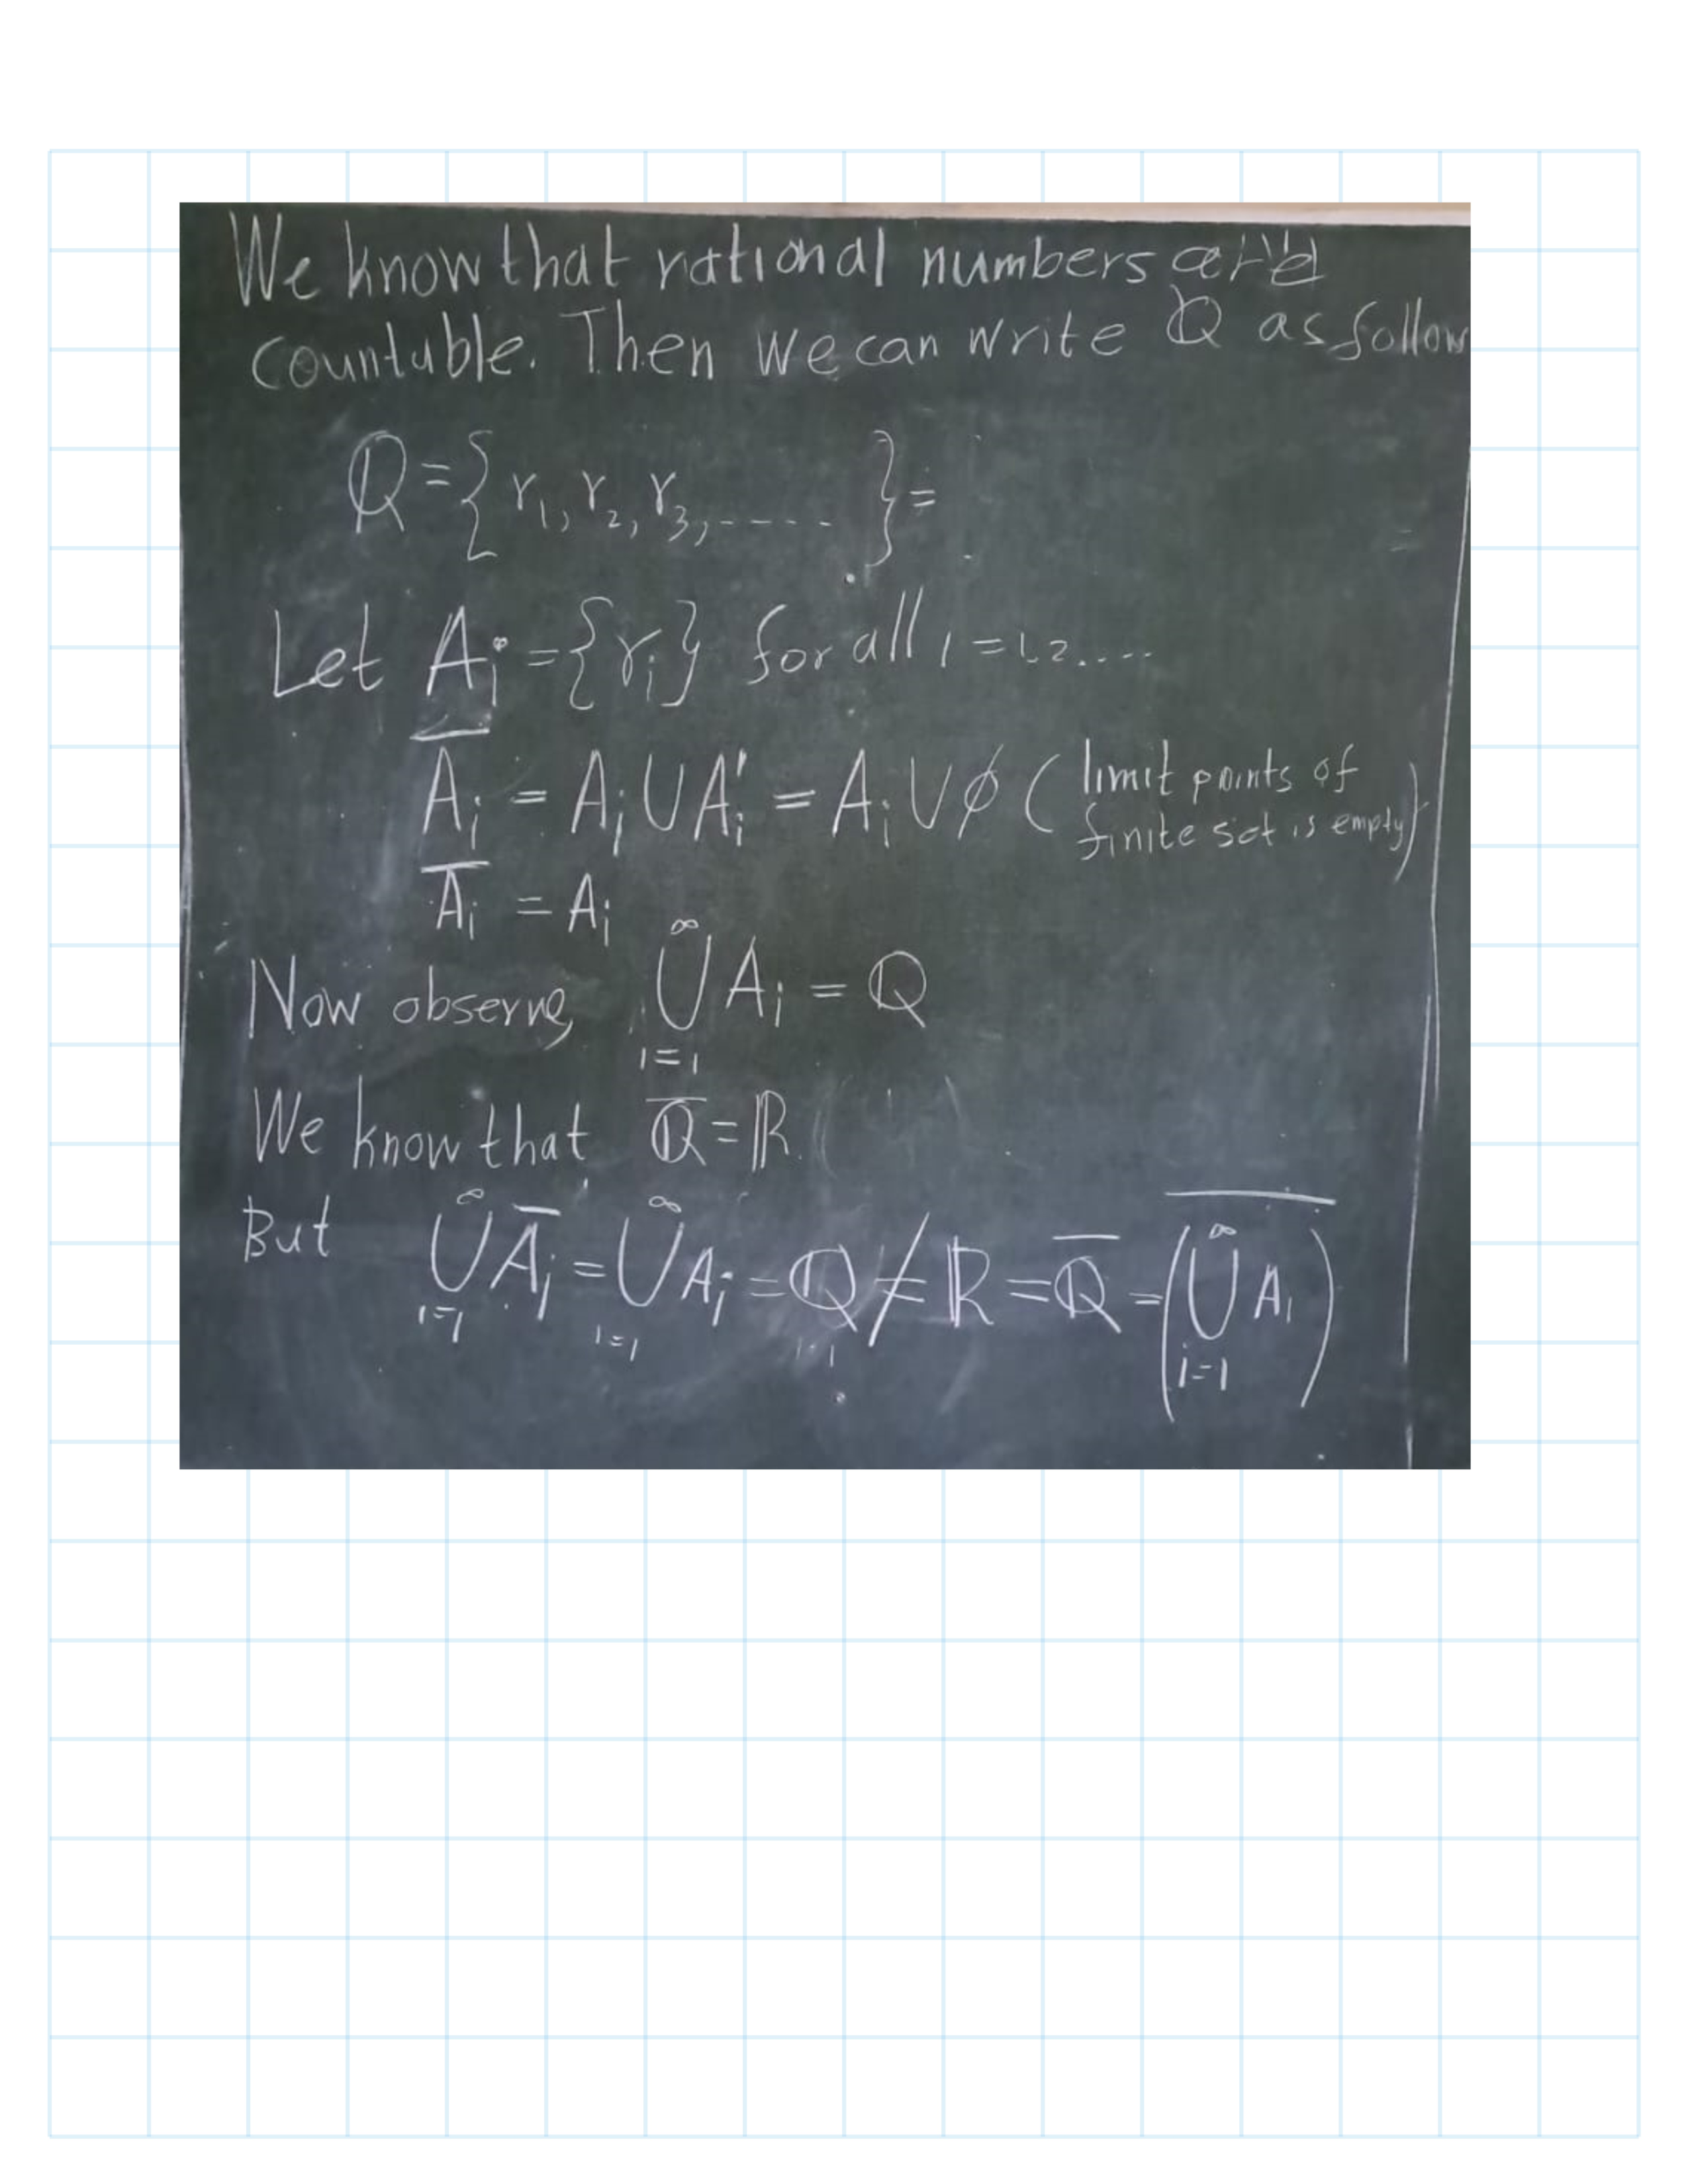 We know that rational numbers are
countable. Then we can write ℚ as follow
ℚ = { r₁, r₂, r₃, ----- } =
Let Aᵢ = {rᵢ} for all i = 1,2....
A̅ᵢ = Aᵢ ∪ Aᵢ' = Aᵢ ∪ ∅ ( limit points of
finite set is empty)
A̅ᵢ = Aᵢ
Now observe, ⋃_{i=1}^{∞} Aᵢ = ℚ
We know that \overline{ℚ} = ℝ.
But ⋃_{i=1}^{∞} A̅ᵢ = ⋃_{i=1}^{∞} Aᵢ = ℚ ≠ ℝ = \overline{ℚ} = \overline{(⋃_{i=1}^{∞} Aᵢ)}